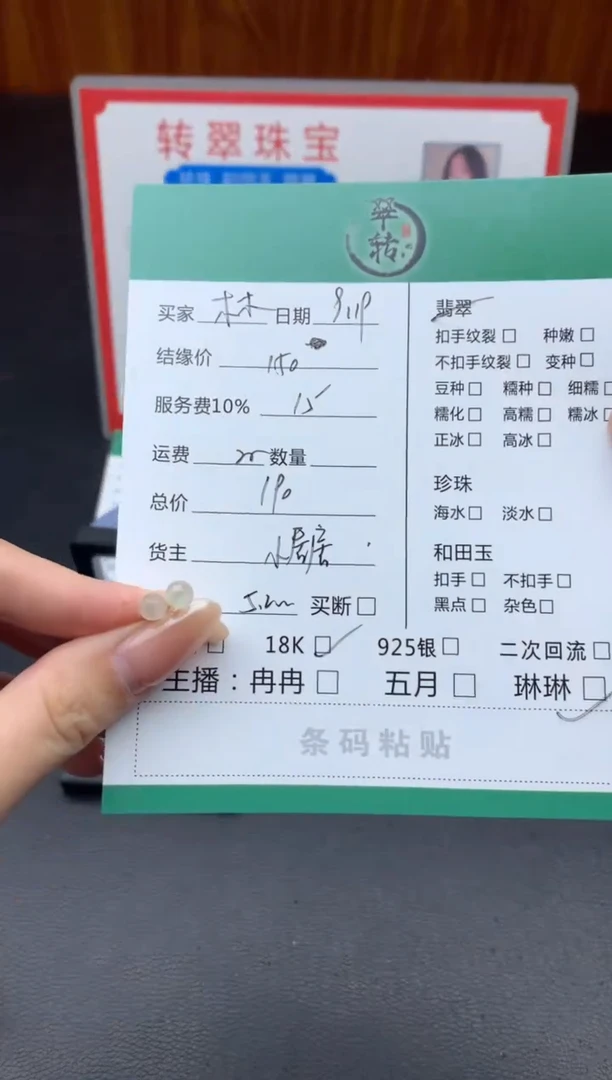 转翠珠宝
翠转
买家 林 日期 9.119
结缘价 150
服务费10% 15
运费 25 数量
总价 190
货主
5.2m 买断
18K ✓ 925银 二次回流
主播：冉冉 五月 琳琳 ✓
条码粘贴
翡翠
扣手纹裂 种嫩
不扣手纹裂 变种
豆种 糯种 细糯
糯化 高糯 糯冰
正冰 高冰
珍珠
海水 淡水
和田玉
扣手 不扣手
黑点 杂色